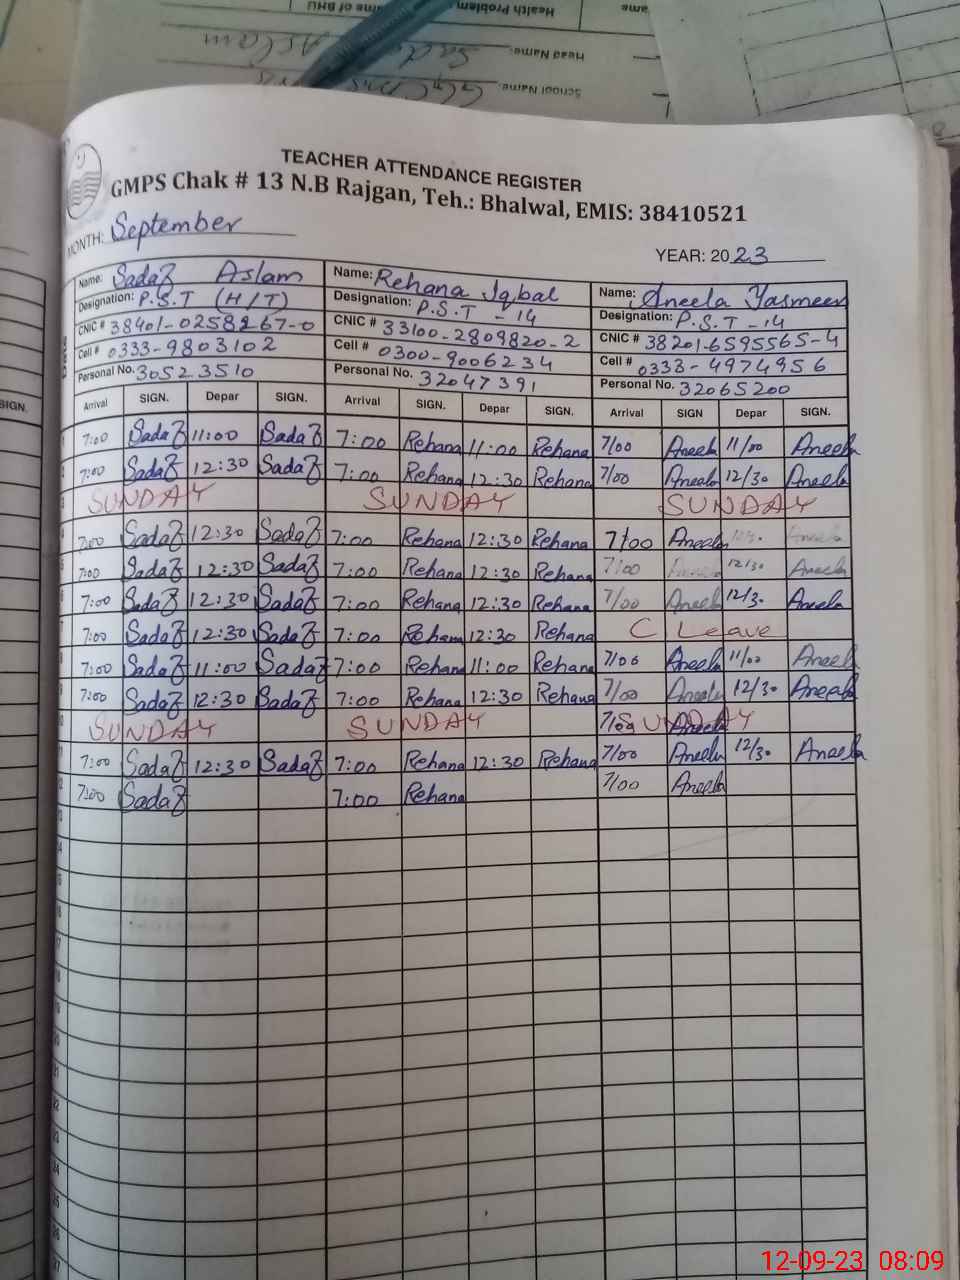 ame
Health Problem
ame of BHU
Head Name:
Sada Aslam
School Name:
GMPS
TEACHER ATTENDANCE REGISTER
GMPS Chak # 13 N.B Rajgan, Teh.: Bhalwal, EMIS: 38410521
MONTH: September
YEAR: 2023
Name: Sadaf Aslam Name: Rehana Iqbal Name: Aneela Yasmeen
Designation: P.S.T (H/T) Designation: P.S.T - 14 Designation: P.S.T - 14
CNIC # 38401-0258267-0 CNIC # 33100-2809820-2 CNIC # 38201-6595565-4
Cell # 0333-9803102 Cell # 0300-9006234 Cell # 0333-4974956
Personal No. 30523510 Personal No. 32047391 Personal No. 32065200
SIGN. Arrival SIGN. Depar SIGN. Arrival SIGN. Depar SIGN. Arrival SIGN Depar SIGN.
1 7:00 Sadaf 11:00 Sadaf 7:00 Rehana 11:00 Rehana 7/00 Aneela 11/00 Aneela
2 7:00 Sadaf 12:30 Sadaf 7:00 Rehana 12:30 Rehana 7/00 Aneela 12/30 Aneela
3 SUNDAY SUNDAY SUNDAY
4 7:00 Sadaf 12:30 Sadaf 7:00 Rehana 12:30 Rehana 7/00 Aneela Aneela
5 7:00 Sadaf 12:30 Sadaf 7:00 Rehana 12:30 Rehana 7/00 Aneela 12/30 Aneela
6 7:00 Sadaf 12:30 Sadaf 7:00 Rehana 12:30 Rehana 7/00 Aneela 12/30 Aneela
7 7:00 Sadaf 12:30 Sadaf 7:00 Rehana 12:30 Rehana C Leave
8 7:00 Sadaf 11:00 Sadaf 7:00 Rehana 11:00 Rehana 7/00 Aneela 11/00 Aneela
9 7:00 Sadaf 12:30 Sadaf 7:00 Rehana 12:30 Rehana 7/00 Aneela 12/30 Aneela
10 SUNDAY SUNDAY 7/00 SUNDAY Aneela
11 7:00 Sadaf 12:30 Sadaf 7:00 Rehana 12:30 Rehana 7/00 Aneela 12/30 Aneela
12 7:00 Sadaf 7:00 Rehana 7/00 Aneela
13
14
15
16
17
18
19
20
21
22
23
24
25
26
27
12-09-23 08:09